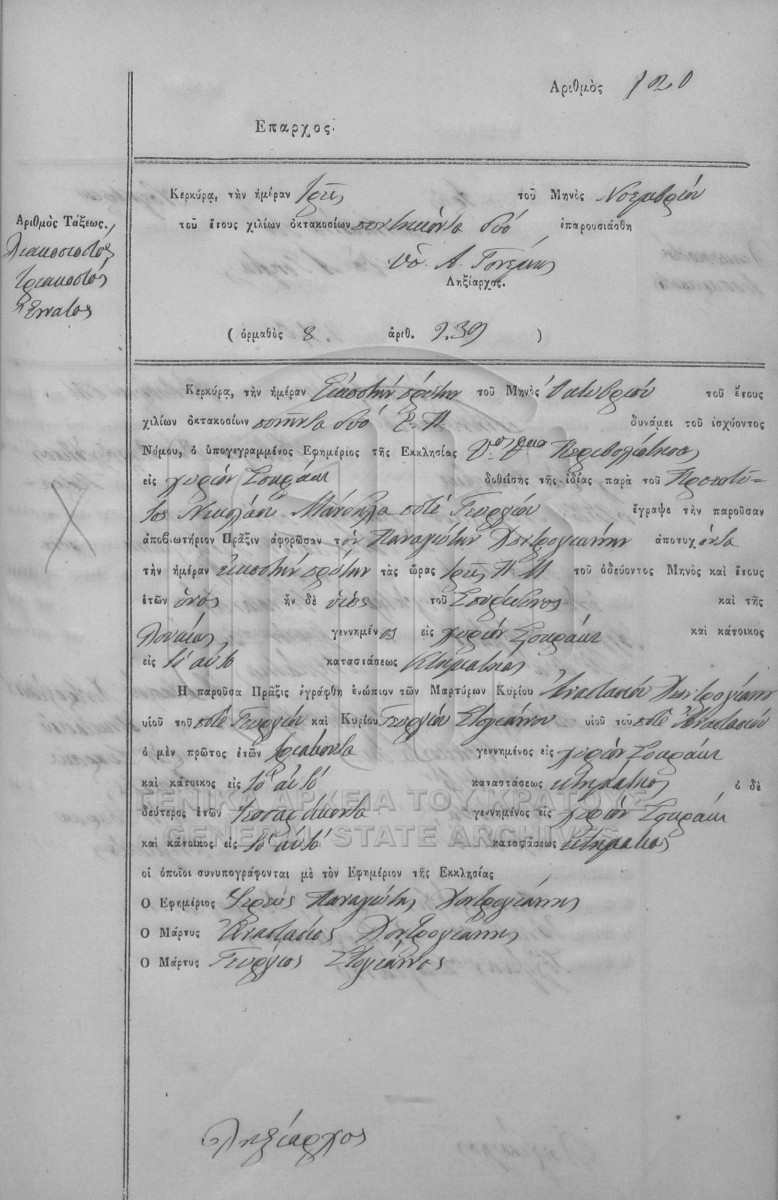 Ἀριθμὸς 120
Ἔπαρχος.
Κερκύρᾳ, τὴν ἡμέραν τρεῖς τοῦ Μηνὸς Νοεμβρίου
Ἀριθμὸς Τάξεως.
τοῦ ἔτους χιλίων ὀκτακοσίων πεντήκοντα δύο ἐπαρουσιάσθη
Διακοσιοστός
τριακοστός
ἔννατος
Ληξίαρχος.
( ὁρμαθὸς 8 ἀριθ. 239 )
Κερκύρᾳ, τὴν ἡμέραν Εἰκοστὴν πρώτην τοῦ Μηνὸς Ὀκτωβρίου τοῦ ἔτους
χιλίων ὀκτακοσίων δύο δυνάμει τοῦ ἰσχύοντος
Νόμου, ὁ ὑπογεγραμμένος Ἐφημέριος τῆς Ἐκκλησίας Περιβολιώτησα
εἰς χωρίον Σωκράκι δοθείσης τῆς ἰδίας παρὰ τοῦ Προεστῶ-
τος Νικολάου ποτὲ Γεωργίου ἔγραψε τὴν παροῦσαν
ἀποβιωτήριον Πρᾶξιν ἀφορῶσαν τὸν Παναγιώτην Χοντρογιάννην ἀποτυχόντα
τὴν ἡμέραν εἰκοστὴν πρώτην τὰς ὥρας τρεῖς Π. Μ τοῦ ὁδεύοντος Μηνὸς καὶ ἔτους
ἐτῶν ἑνός ἦν δὲ υἱός τοῦ Σπυρίδωνος καὶ τῆς
Λουκίας γεννημένος εἰς χωρίον Σωκράκι καὶ κάτοικος
εἰς τὸ αὐτό καταστάσεως κτηματίας
Ἡ παροῦσα Πρᾶξις ἐγράφθη ἐνώπιον τῶν Μαρτύρων Κυρίου Ἀναστασίου Χοντρογιάννη
υἱοῦ τοῦ ποτὲ Γεωργίου καὶ Κυρίου Γεωργίου υἱοῦ τοῦ ποτὲ Ἀναστασίου
ὁ μὲν πρῶτος ἐτῶν τριάκοντα γεννημένος εἰς χωρίον Σωκράκι
καὶ κάτοικος εἰς τὸ αὐτό καταστάσεως κτηματίας ὁ δὲ
δεύτερος ἐτῶν τεσσαράκοντα γεννημένος εἰς χωρίον Σωκράκι
καὶ κάτοικος εἰς τὸ αὐτό καταστάσεως κτηματίας
οἱ ὁποῖοι συνυπογράφονται μὲ τὸν Ἐφημέριον τῆς Ἐκκλησίας
Ὁ Ἐφημέριος Ἱερεύς Παναγιώτης Χοντρογιάννης
Ὁ Μάρτυς Ἀναστάσιος Χοντρογιάννης
Ὁ Μάρτυς Γεώργιος
Ληξίαρχος
ΓΕΝΙΚΑ ΑΡΧΕΙΑ ΤΟΥ ΚΡΑΤΟΥΣ
GENERAL STATE ARCHIVES